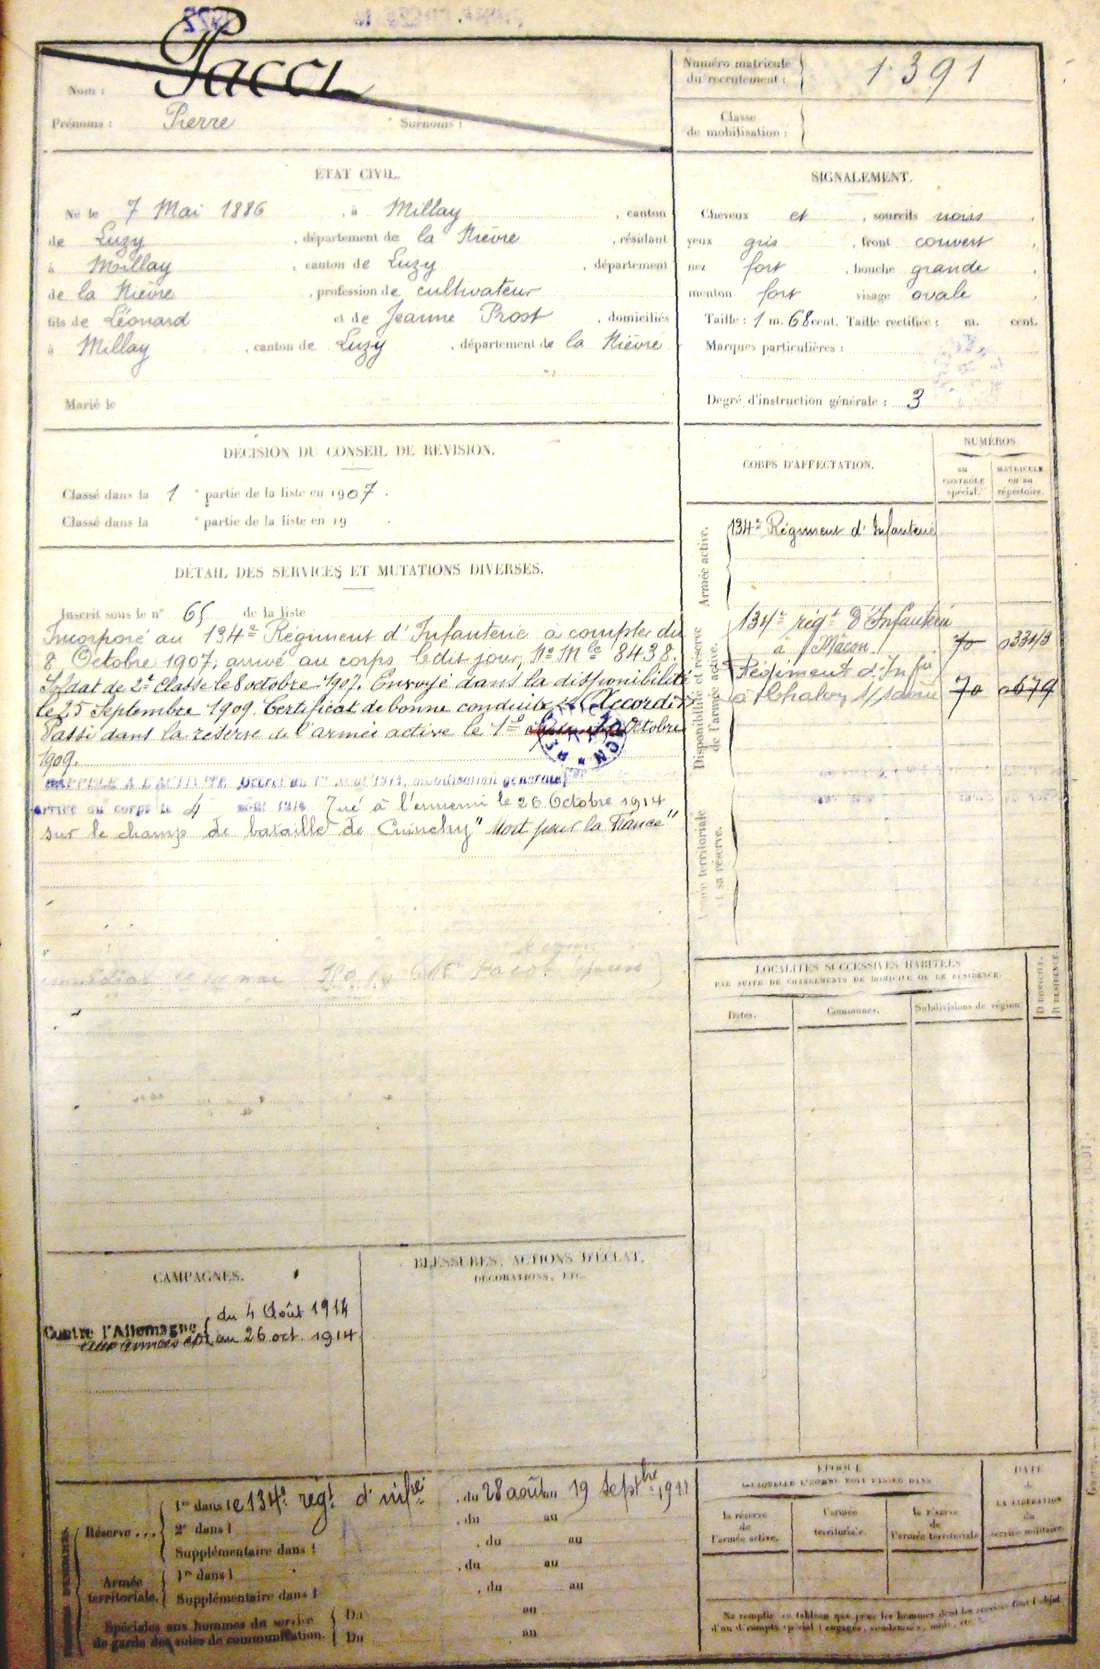 Pacci
Nom :
Prénoms : Pierre Surnoms :
Numéro matricule du recrutement : 1391
Classe de mobilisation :
ÉTAT CIVIL.
Né le 7 Mai 1886, à Millay, canton
de Luzy, département de la Nièvre, résidant
à Millay, canton de Luzy, département
de la Nièvre, profession de cultivateur
fils de Léonard et de Jeanne Prost, domiciliés
à Millay, canton de Luzy, département de la Nièvre
Marié le
SIGNALEMENT.
Cheveux et, sourcils
yeux gris, front couvert,
nez fort, bouche grande,
menton fort visage ovale
Taille : 1 m. 68 cent. Taille rectifiée : m. cent.
Marques particulières :
Degré d'instruction générale : 3
DÉCISION DU CONSEIL DE RÉVISION.
Classé dans la 1e partie de la liste en 1907.
Classé dans la e partie de la liste en 19 .
CORPS D'AFFECTATION.
NUMÉROS
au contrôle spécial.
matricule ou au répertoire.
Armée active.
134e Régiment d'Infanterie
Disponibilité et réserve de l'armée active.
134e régt d'Infanterie
à Mâcon 70
Régiment d'Infie
à Chalon s/ Saône 70
Armée territoriale et sa réserve.
DÉTAIL DES SERVICES ET MUTATIONS DIVERSES.
Inscrit sous le n° 65 de la liste
Incorporé au 134e Régiment d'Infanterie à compter du
8 Octobre 1907, arrivé au corps ledit jour, No Mle 8438.
Soldat de 2e Classe le 8 octobre 1907. Envoyé dans la disponibilité
le 25 Septembre 1909. Certificat de bonne conduite Accordé.
Passé dans la réserve de l'armée active le 1er Octobre
1909.
RAPPELÉ A L'ACTIVITÉ Décret du 1er Août 1914, mobilisation générale
arrivé au corps le 4 août 1914 Tué à l'ennemi le 26 Octobre 1914
sur le champ de bataille de Cuinchy "Mort pour la France"
LOCALITÉS SUCCESSIVES HABITÉES
PAR SUITE DE CHANGEMENTS DE DOMICILE OU DE RÉSIDENCE.
Dates.
Communes.
Subdivisions de région.
D domicile. R résidence.
CAMPAGNES.
Contre l'Allemagne { du 4 Août 1914
aux armées au 26 oct. 1914
BLESSURES, ACTIONS D'ÉCLAT,
DÉCORATIONS, ETC.
Réserve . . .
1re dans le 134e régt d'infie, du 28 août au 19 Septbre 1911
2e dans l , du au
Supplémentaire dans l , du au
Armée territoriale.
1re dans l , du au
Supplémentaire dans l , du au
Spéciales aux hommes du service de garde des voies de communication.
Du au
Du au
ÉPOQUE
À LAQUELLE L'HOMME DOIT PASSER DANS
la réserve de l'armée active.
l'armée territoriale.
la réserve de l'armée territoriale
DATE
de
LA LIBÉRATION
du
service militaire.
Ne remplir ce tableau que pour les hommes dont les services font l'objet
d'un décompte spécial (engagés, condamnés, omis, etc.)